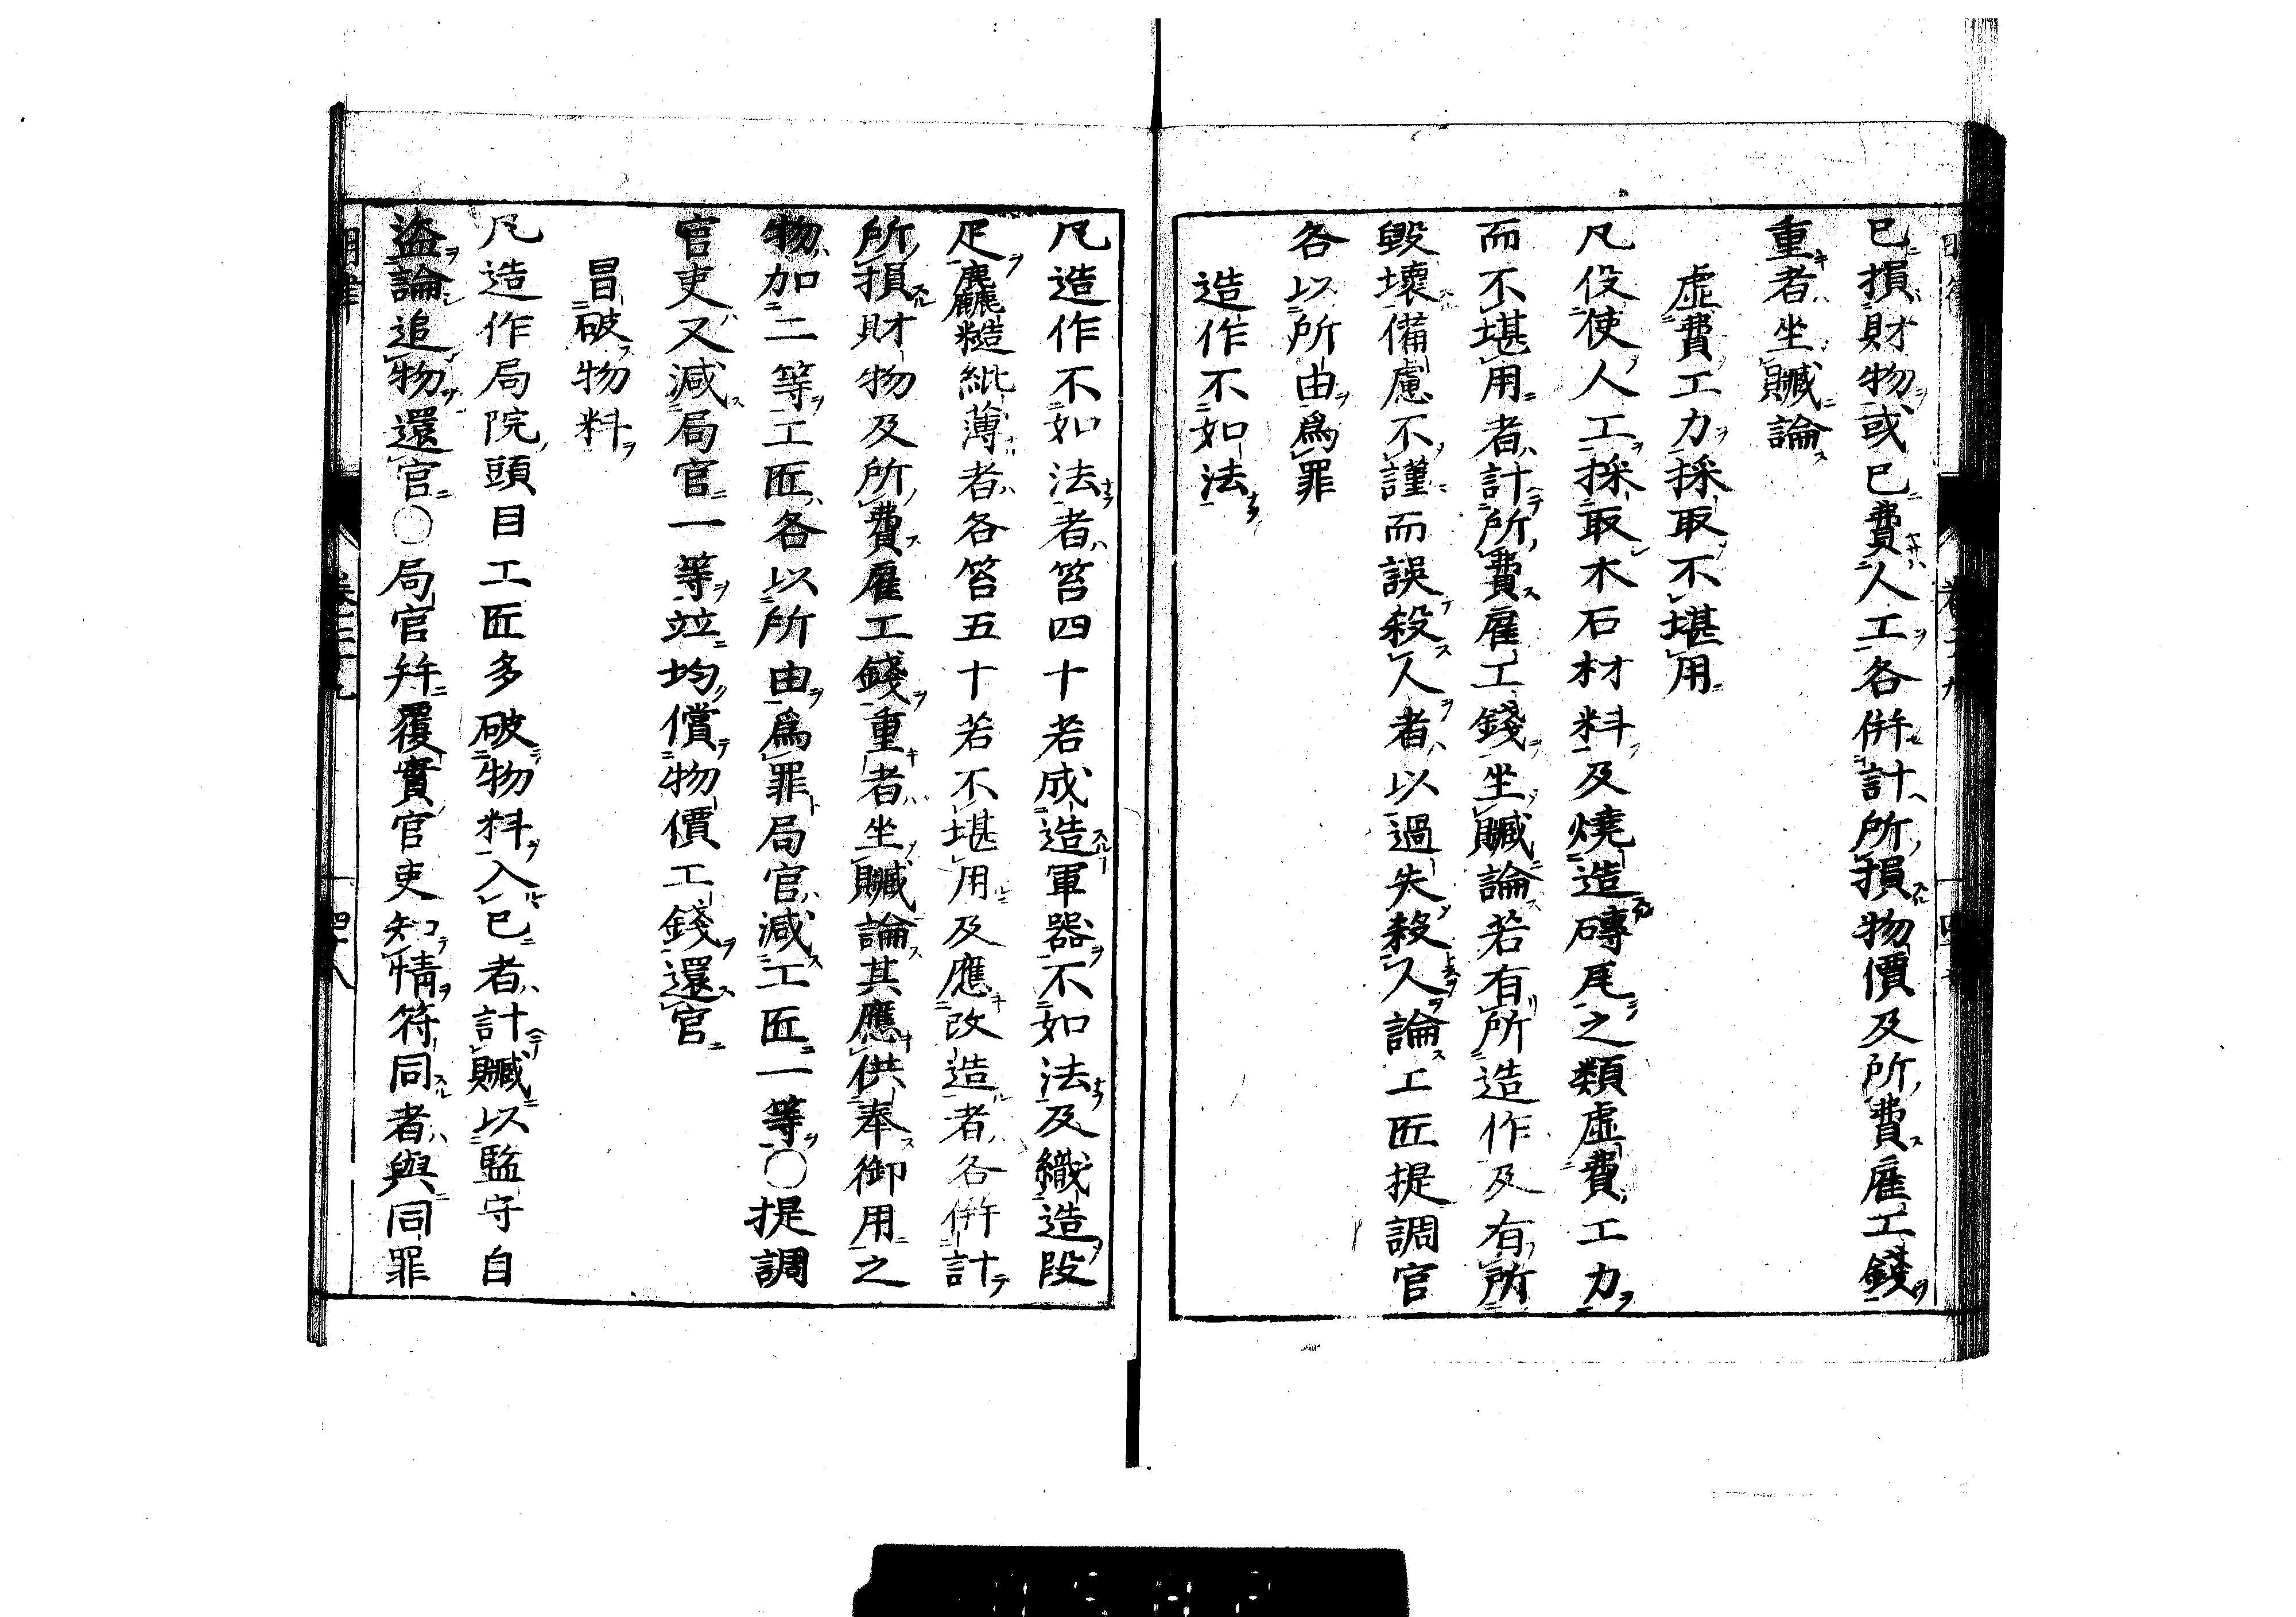 已損財物或已費人工各併計所損物價及所費雇工錢
重者坐贓論
虛費工力採取不堪用
凡役使人工採取木石材料及燒造磚瓦之類虛費工力
而不堪用者計所費雇工錢坐贓論若有所造作及有所
毀壞備慮不謹而誤殺人者以過失殺人論工匠提調官
各以所由爲罪
造作不如法
凡造作不如法者笞四十若成造軍器不如法及織造段
疋麤糙紕薄者各笞五十若不堪用及應改造者各併計
所損財物及所費雇工錢重者坐贓論其應供奉御用之
物加二等工匠各以所由爲罪局官減工匠一等〇提調
官吏又減局官一等竝均償物價工錢還官
冒破物料
凡造作局院頭目工匠多破物料入已者計贓以監守自
盜論追物還官〇局官幷覆實官吏知情符同者與同罪